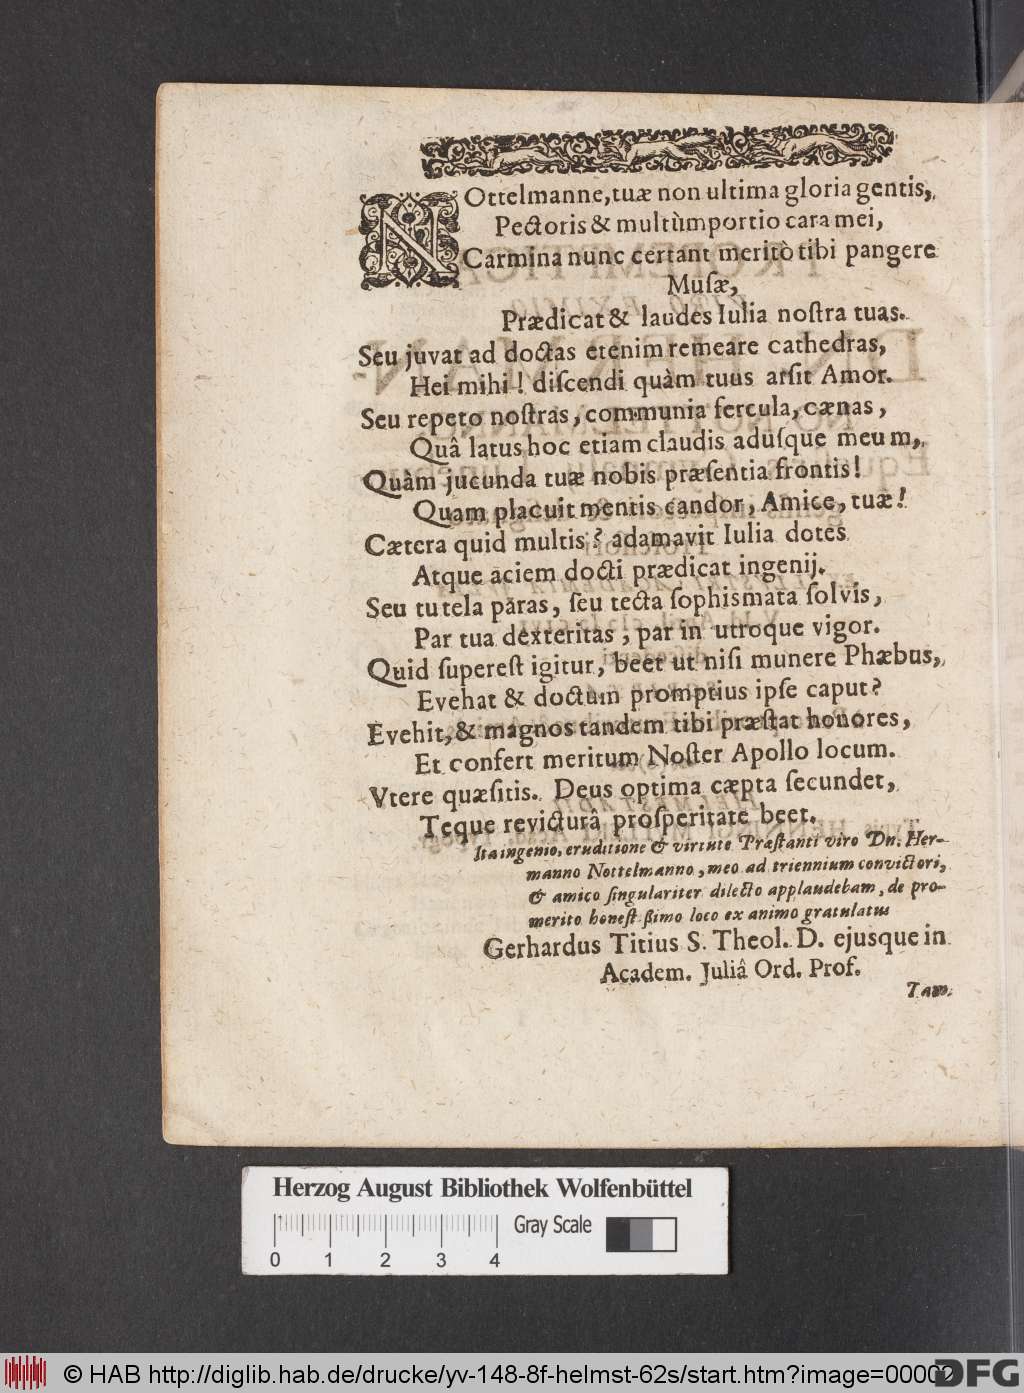 NOttelmanne, tuæ non ultima gloria gentis,
Pectoris & multùm portio cara mei,
Carmina nunc certant meritò tibi pangere
Muſæ,
Prædicat & laudes Iulia noſtra tuas.
Seu juvat ad doctas etenim remeare cathedras,
Hei mihi! diſcendi quàm tuus arſit Amor.
Seu repeto noſtras, communia fercula, cænas,
Quâ latus hoc etiam claudis aduſque meum,
Quàm jucunda tuæ nobis præſentia frontis!
Quam placuit mentis candor, Amice, tuæ!
Cætera quid multis? adamavit Iulia dotes
Atque aciem docti prædicat ingenij.
Seu tu tela paras, ſeu tecta ſophismata ſolvis,
Par tua dexteritas, par in utroque vigor.
Quid ſupereſt igitur, beet ut niſi munere Phæbus,
Evehat & doctum promptius ipſe caput?
Evehit, & magnos tandem tibi præſtat honores,
Et confert meritum Noſter Apollo locum.
Vtere quæſitis. Deus optima cæpta ſecundet,
Teque revicturâ proſperitate beet.
Ita ingenio, eruditione & virtute Præſtanti viro Dn. Her-
manno Nottelmanno, meo ad triennium convictori,
& amico ſingulariter dilecto applaudebam, de pro-
merito honeſtißimo loco ex animo gratulatus
Gerhardus Titius S. Theol. D. ejusque in
Academ. Juliâ Ord. Prof.
Tam.
Herzog August Bibliothek Wolfenbüttel
Gray Scale
0 1 2 3 4
© HAB http://diglib.hab.de/drucke/yv-148-8f-helmst-62s/start.htm?image=00002
DFG